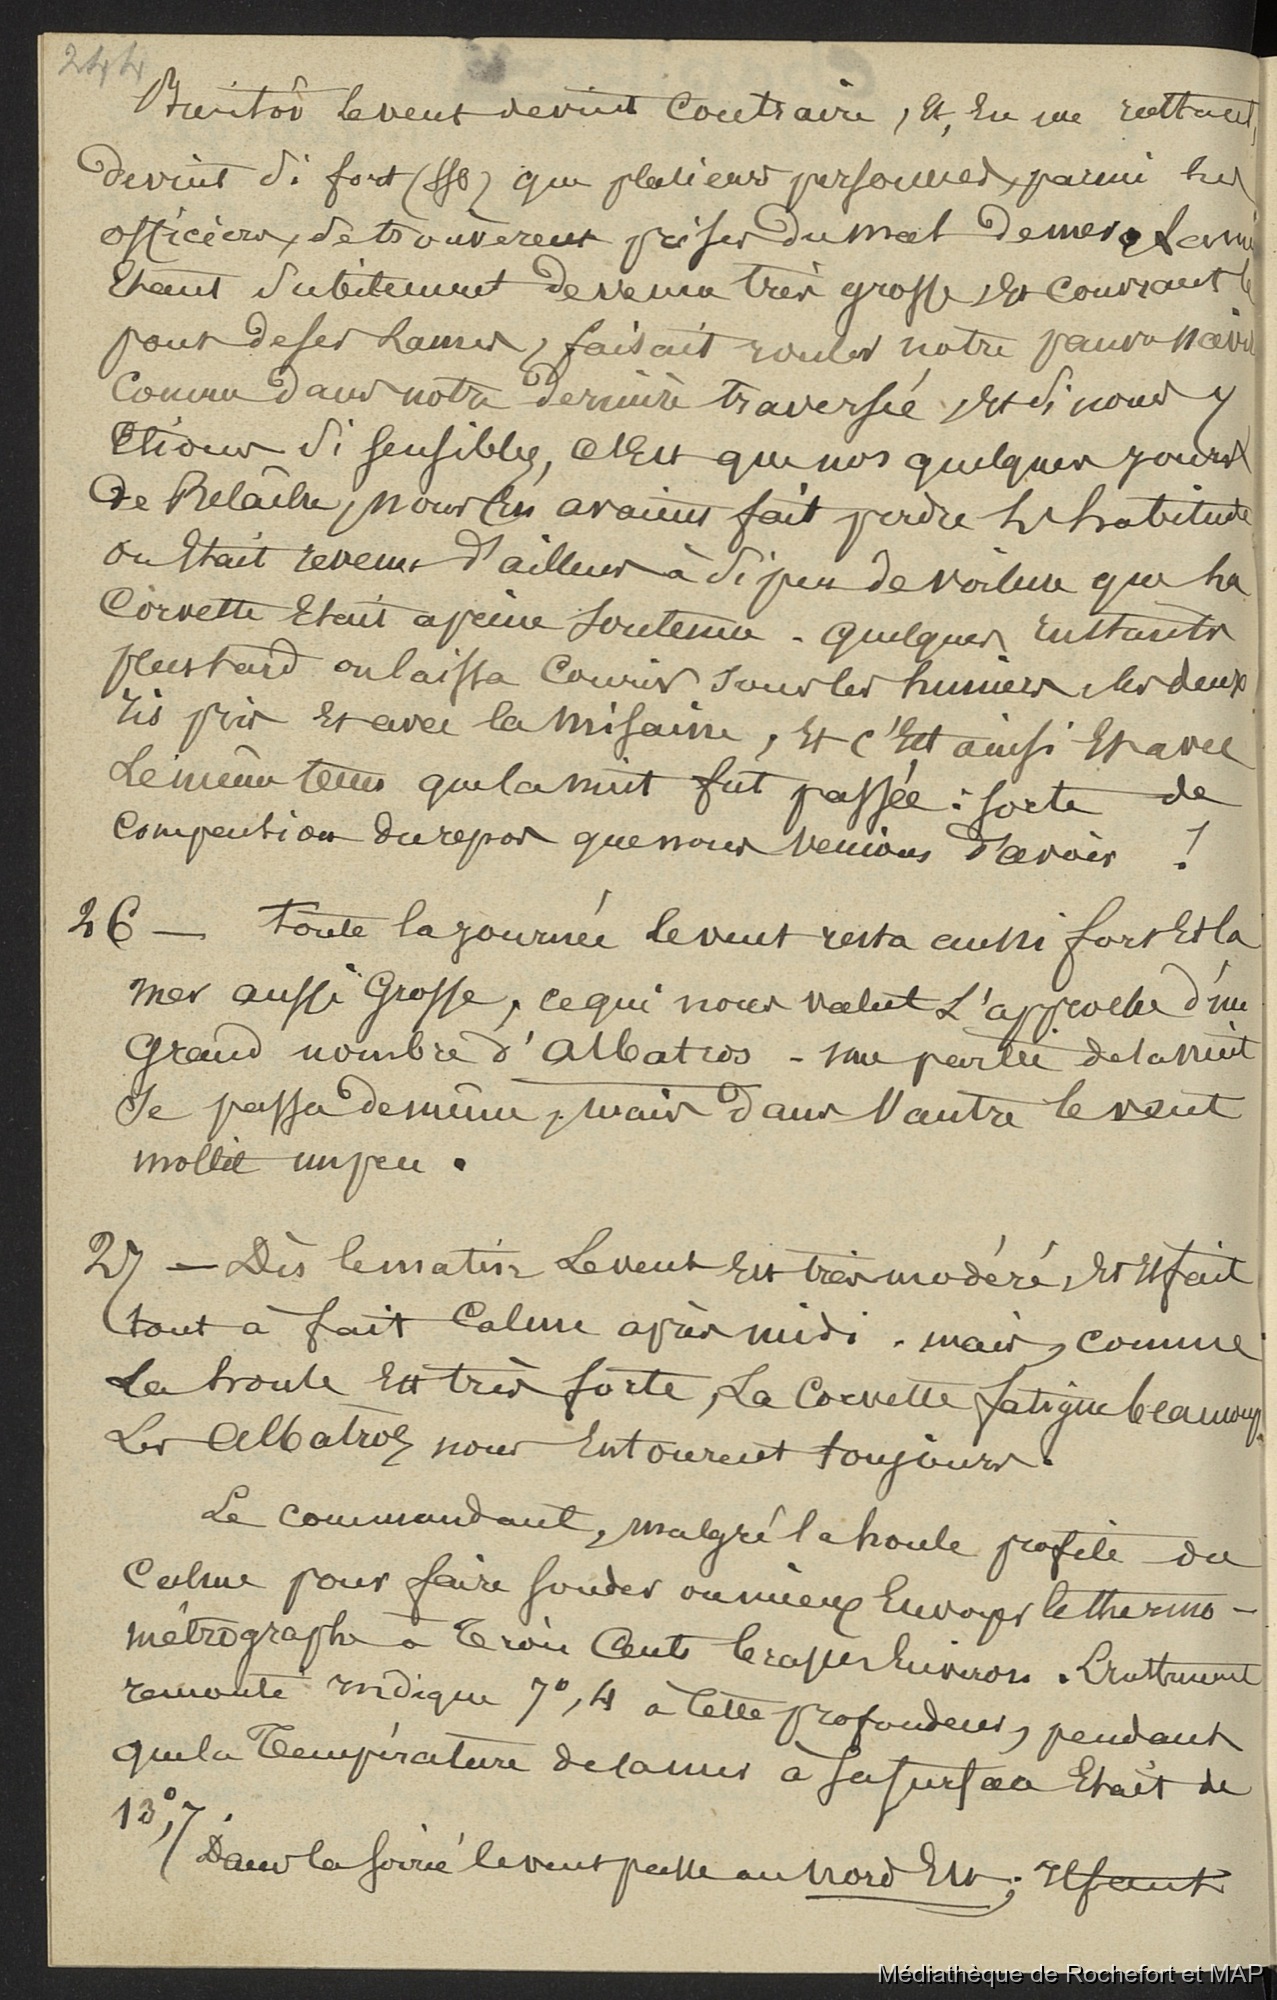 244
Bientôt le vent devint Contraire, Et, En un instant,
devint si fort (SSO) que plusieurs personnes, parmi les
officiers, se trouvèrent prises du mal de mer. La mer
Etant Subitement devenu très grosse, Et Couvrant le
pont de ses Lames, faisait rouler notre pauvre navire
Comme dans notre dernière traversée, Et si nous y
Etions si sensibles, C'Est que nos quelques jours
de Relâche, nous En avaient fait perdre l'habitude
on Etait revenu d'ailleurs à si peu de voilure que la
Corvette Etait a peine Soutenue - quelques Instants
plus tard on laissa Courir sous les huniers, les deux
ris pris Et avec la Misaine, Et C'Est ainsi Et avec
Le même tems que la nuit fut passée : sorte de
Compensation du repos que nous venions d'avoir !
26 — Toute la journée le vent resta aussi fort Et la
mer aussi Grosse, ce qui nous valut L'approche d'un
Grand nombre d'Albatros - une partie de la nuit
Se passa de même, mais dans l'autre le vent
mollit un peu.
27 — Dès le matin Le vent Est très modéré, Et Il fait
tout à fait Calme après midi. mais, comme
La houle Est très forte, La Corvette fatigue beaucoup.
Les Albatros nous Entourent toujours.
Le commandant, malgré la houle profite du
Calme pour faire Sonder ou mieux Envoyer le thermo-
métrographe à Trois Cents brasses Environ. L'Instrument
remonté Indique 7°,4 à Cette profondeur, pendant
que la Température de la mer à Sa surface Etait de
13°,7.
Dans la Soirée le vent passe au Nord Est ; Il faut
Médiathèque de Rochefort et MAP